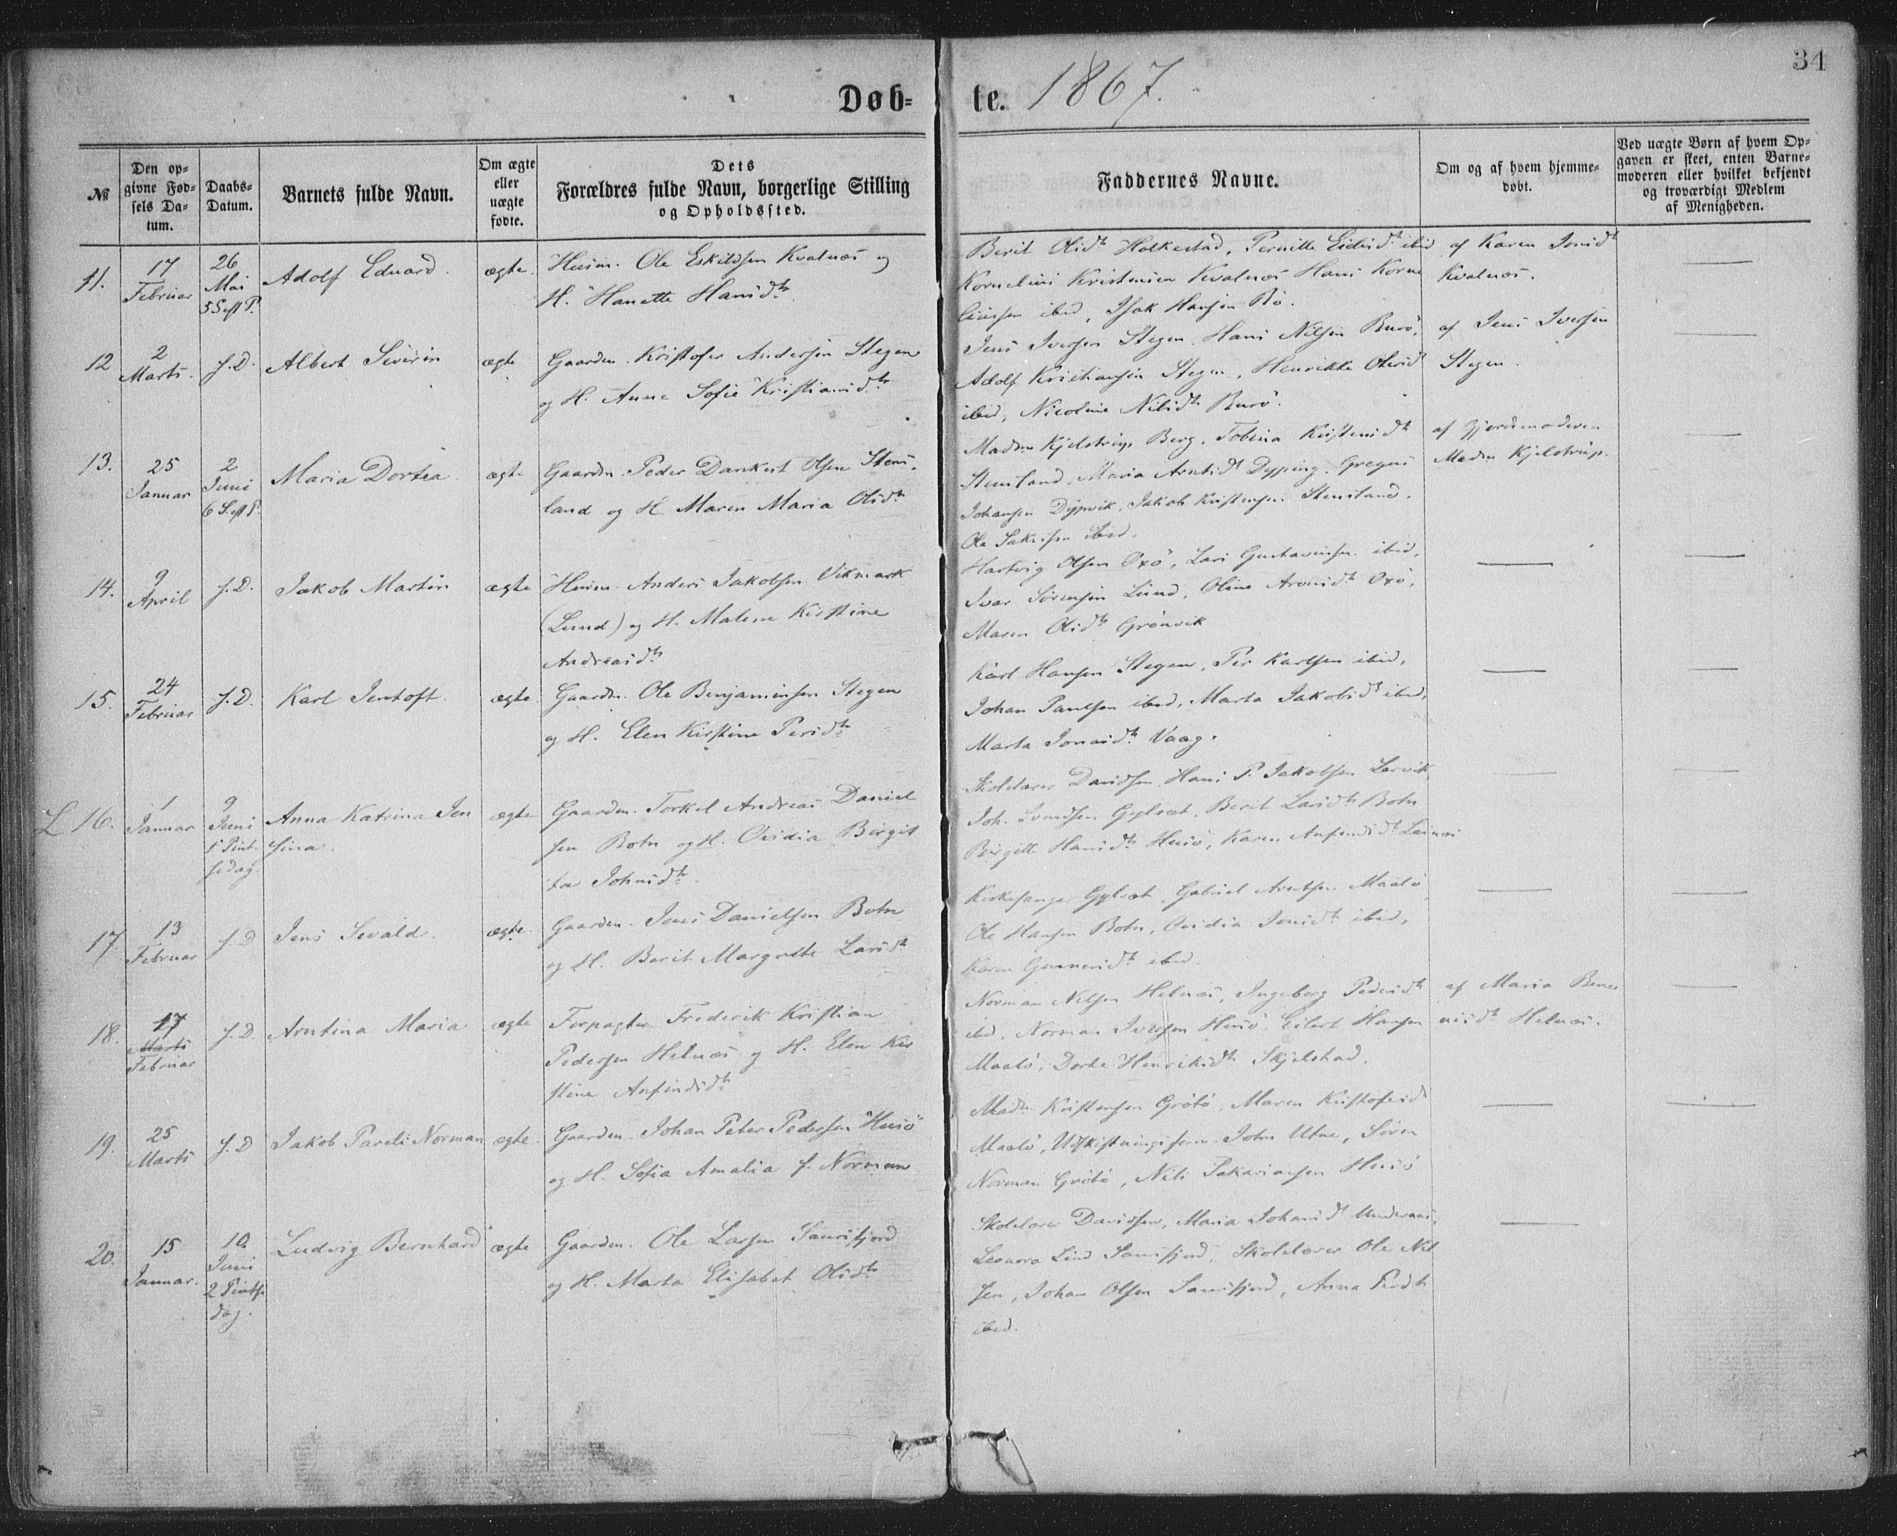 34
Døb- te. 1867.
№
Den op-
givne Fød-
sels Da-
tum.
Daabs-
Datum.
Barnets fulde Navn.
Om ægte
eller
uægte
fødte.
Dets
Forældres fulde Navn, borgerlige Stilling
og Opholdssted.
Faddernes Navne.
Om og af hvem hjemme-
døbt.
Ved uægte Børn af hvem Op-
gaven er skeet, enten Barne-
moderen eller hvilket bekjendt
og troværdigt Medlem
af Menigheden.
11.
17
Februar
26
Mai
5 S. eft P.
Adolf Eduard.
ægte.
Husm. Ole Eskildsen Kvalnæs og
H. Hanette Hansdtr.
Berit Olsdtr Holkestad, Pernille ibid
Kornelius Kristensen Kvalnæs Hans Korne
liussen ibid, Isak Hansen Bø.
af Karen Jonsdtr
Kvalnæs.
12
2
Marts.
J. D.
Albert Severin
ægte
Gaardm. Kristofer Andersen Stegen
og H. Anne Sofie Kristiansdtr.
Jens Iversen Stegen. Hans Nilsen Burø,
Adolf Kristiansen Stegen, Henrikke Olsdtr
ibid, Nicoline Nilsdtr Burø.
af Jens Iversen
Stegen.
13.
25
Januar
2
Juni
6 S. eft P.
Maria Dortea.
ægte
Gaardm. Peder Dankert Olsen Stens-
land og H. Maren Maria Olsdtr
Madm Kjelstrup Berg. Tobina Kristensdtr
Stensland, Maria Arntsdtr Dypping. Gregus
Johansen Dypvik, Jakob Kristensen Stensland.
Ole Sakrisen ibid.
af Gjordemoderen
Madm Kjelstrup.
14.
9
April
J. D.
Jakob Martin
ægte
Husm. Anders Jakobsen Vikmark
(Lund) og H. Malene Kirstine
Andreasdtr
Hartvig Olsen Oxø, Lars Gustavsen ibid,
Ivar Sørensen Lund, Oline Aronsdtr Oxø,
Maren Olsdtr Grønvik
15.
24
Februar
J. D.
Karl Jentoft.
ægte.
Gaardm. Ole Benjaminsen Stegen
og H. Elen Kirstine Persdtr.
Karl Hansen Stegen, Per Karlsen ibid,
Johan Paulsen ibid, Marta Jakobsdtr ibid,
Marta Jonasdtr Vaag.
L 16.
1
Januar
9
Juni
1 Pint-
sedag.
Anna Katrina Jen
sina.
ægte
Gaardm. Torkel Andreas Daniel
sen Botn og H. Ovidia Birgit
ta Johnsdtr.
Skolelærer Davidsen, Hans P. Jakobsen Larvik
Joh. Svendsen Gylset, Berit Larsdtr Botn
Birgitte Hansdtr Husø, Karen Anfinsdtr
17.
13
Februar
J. D
Jens Sevald.
ægte.
Gaardm. Jens Danielsen Botn
og H. Berit Margrete Larsdtr
Kirkesanger Gylset, Gabriel Arntsen Maalø
Ole Hansen Botn, Ovidia Jonsdtr ibid,
Karen Gunnersdtr ibid.
18.
17
Marts
Februar
J. D.
Arntina Maria
ægte
Forpagter Frederik Kristian
Pedersen Helnæs og H. Elen Kir
stine Anfindsdtr
Norman Nilsen Helnæs, Ingeborg Pedersdtr
ibid, Norman Iversen Husø, Eilert Hansen
Maalø, Dorte Henriksdtr Skjelstad.
af Maria Benes
nisdtr Helnæs.
19.
25
Marts
J. D
Jakob Pareli Norman
ægte.
Gaardm. Johan Peter Pedersen Husø
og H. Sofia Amalia f. Norman
Madm Kristensen Grøtø, Maren Kristofersdtr
Maalø, Udskiftningsform. John Utne, Søren
Norman Grøtø, Nils Sakariassen Husø
20.
15
Januar.
10
Juni
2 Pintse
dag.
Ludvig Bernhard
ægte
Gaardm. Ole Larsen Saursfjord
og H. Marta Elisabet Olsdtr
Skolelærer Davidsen, Maria Johansdtr
Leonora Lind Saursfjord, Skolelærer Ole Nil
sen, Johan Olsen Saursfjord, Anna Persdtr
ibid.